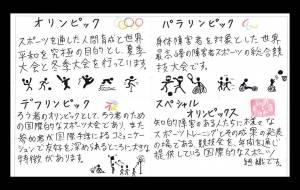 オリンピック
スポーツを通した人間育成と世界
平和を究極の目的とし、夏季
大会と冬季大会を行っています。
パラリンピック
身体障害者を対象とした世界
最高峰の障害者スポーツの総合競
技大会です。
デフリンピック
ろう者のオリンピックとして、ろう者のため
の国際的なスポーツ大会であり、また
参加者が国際手話によるコミュニケー
ションで友好を深められるところに大きな
特徴があります。
スペシャル
オリンピックス
知的障害のある人たちに様々な
スポーツトレーニングとその成果の発表
の場である、競技会を、年間を通じ
提供している国際的なスポーツ
組織です。